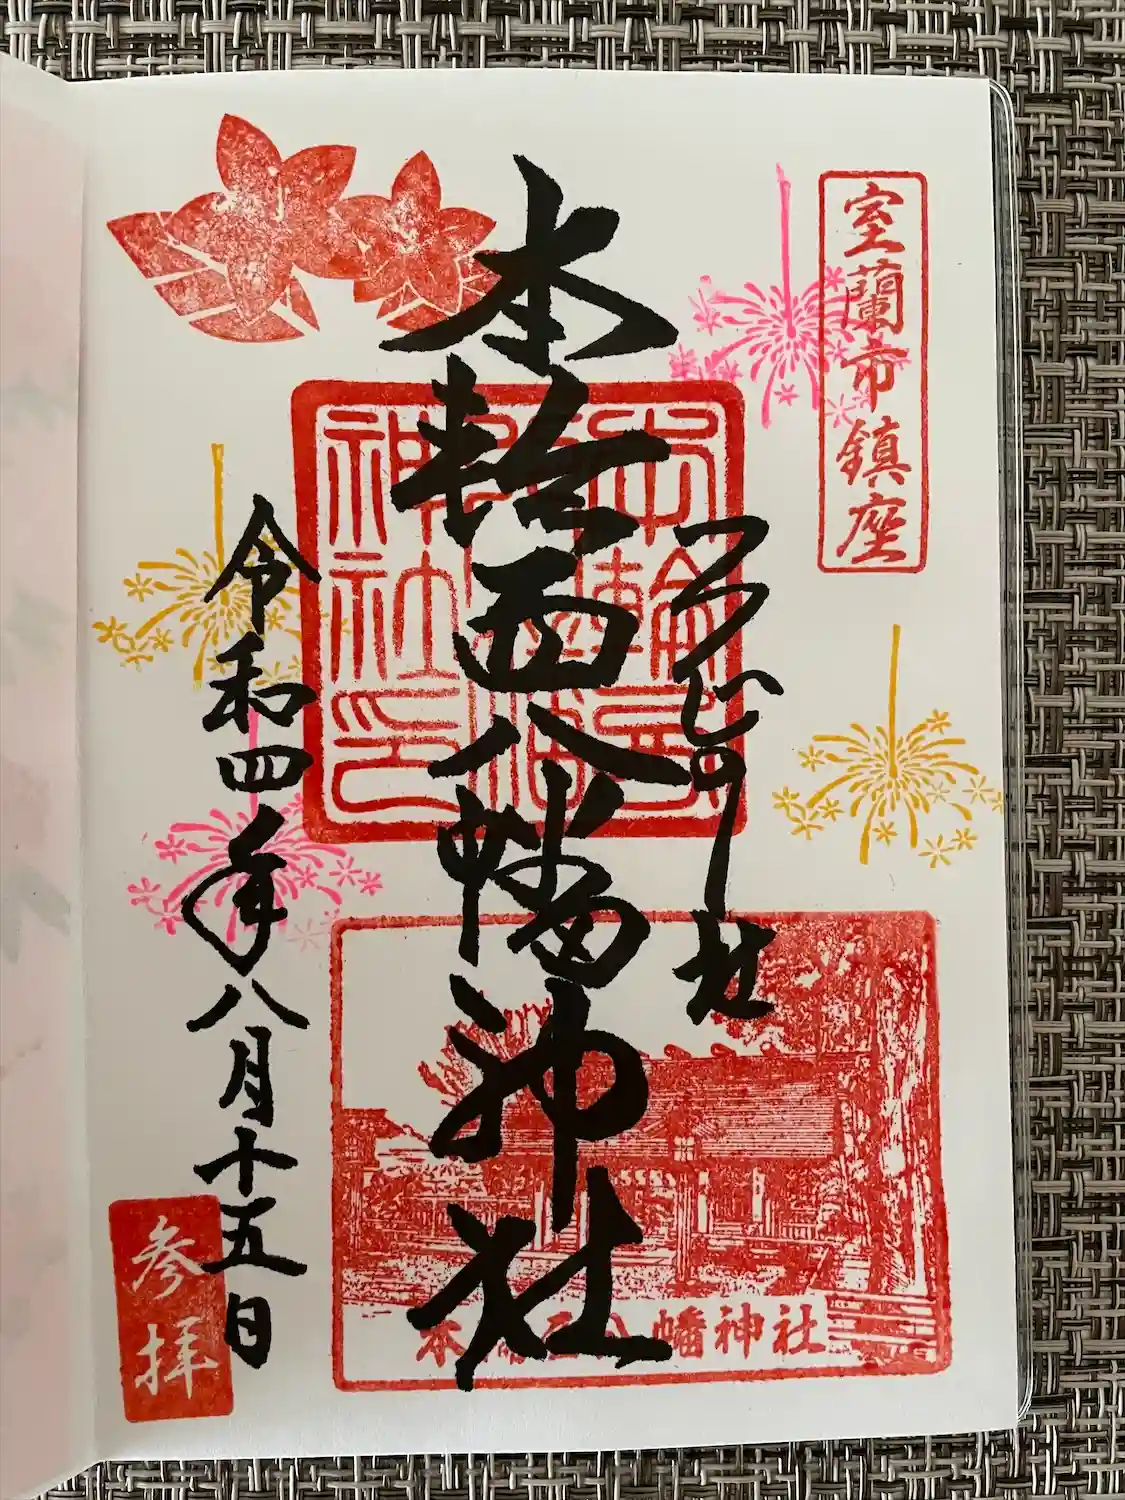 室蘭市鎮座
つつじの
本輪西八幡神社
本輪西
神社印
本輪西八幡神社
令和四年八月十五日
参拝